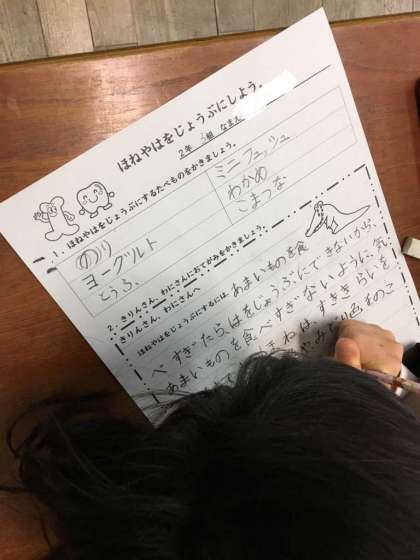 ほねやはをじょうぶにしよう。
2年 組 なまえ
1. ほねやはをじょうぶにするたべものをかきましょう。
のり
ヨーグルト
とうふ
ミニフィッシュ
わかめ
こまつな
2. きりんさん、わにさんにおてがみをかきましょう。
きりんさん、わにさんへ
ほねやはをじょうぶにするには、あまいものを食
べすぎたらはをじょうぶにできないから、
あまいものを食べすぎないように、気
ほねは、すききらいを
みどり色をのこ